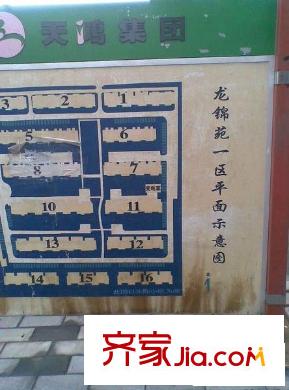 天鸿集团
3 2 1
5 6
8 7
10 11
13 12
14 15 16
龙锦苑一区平面示意图
齐家Jia.com